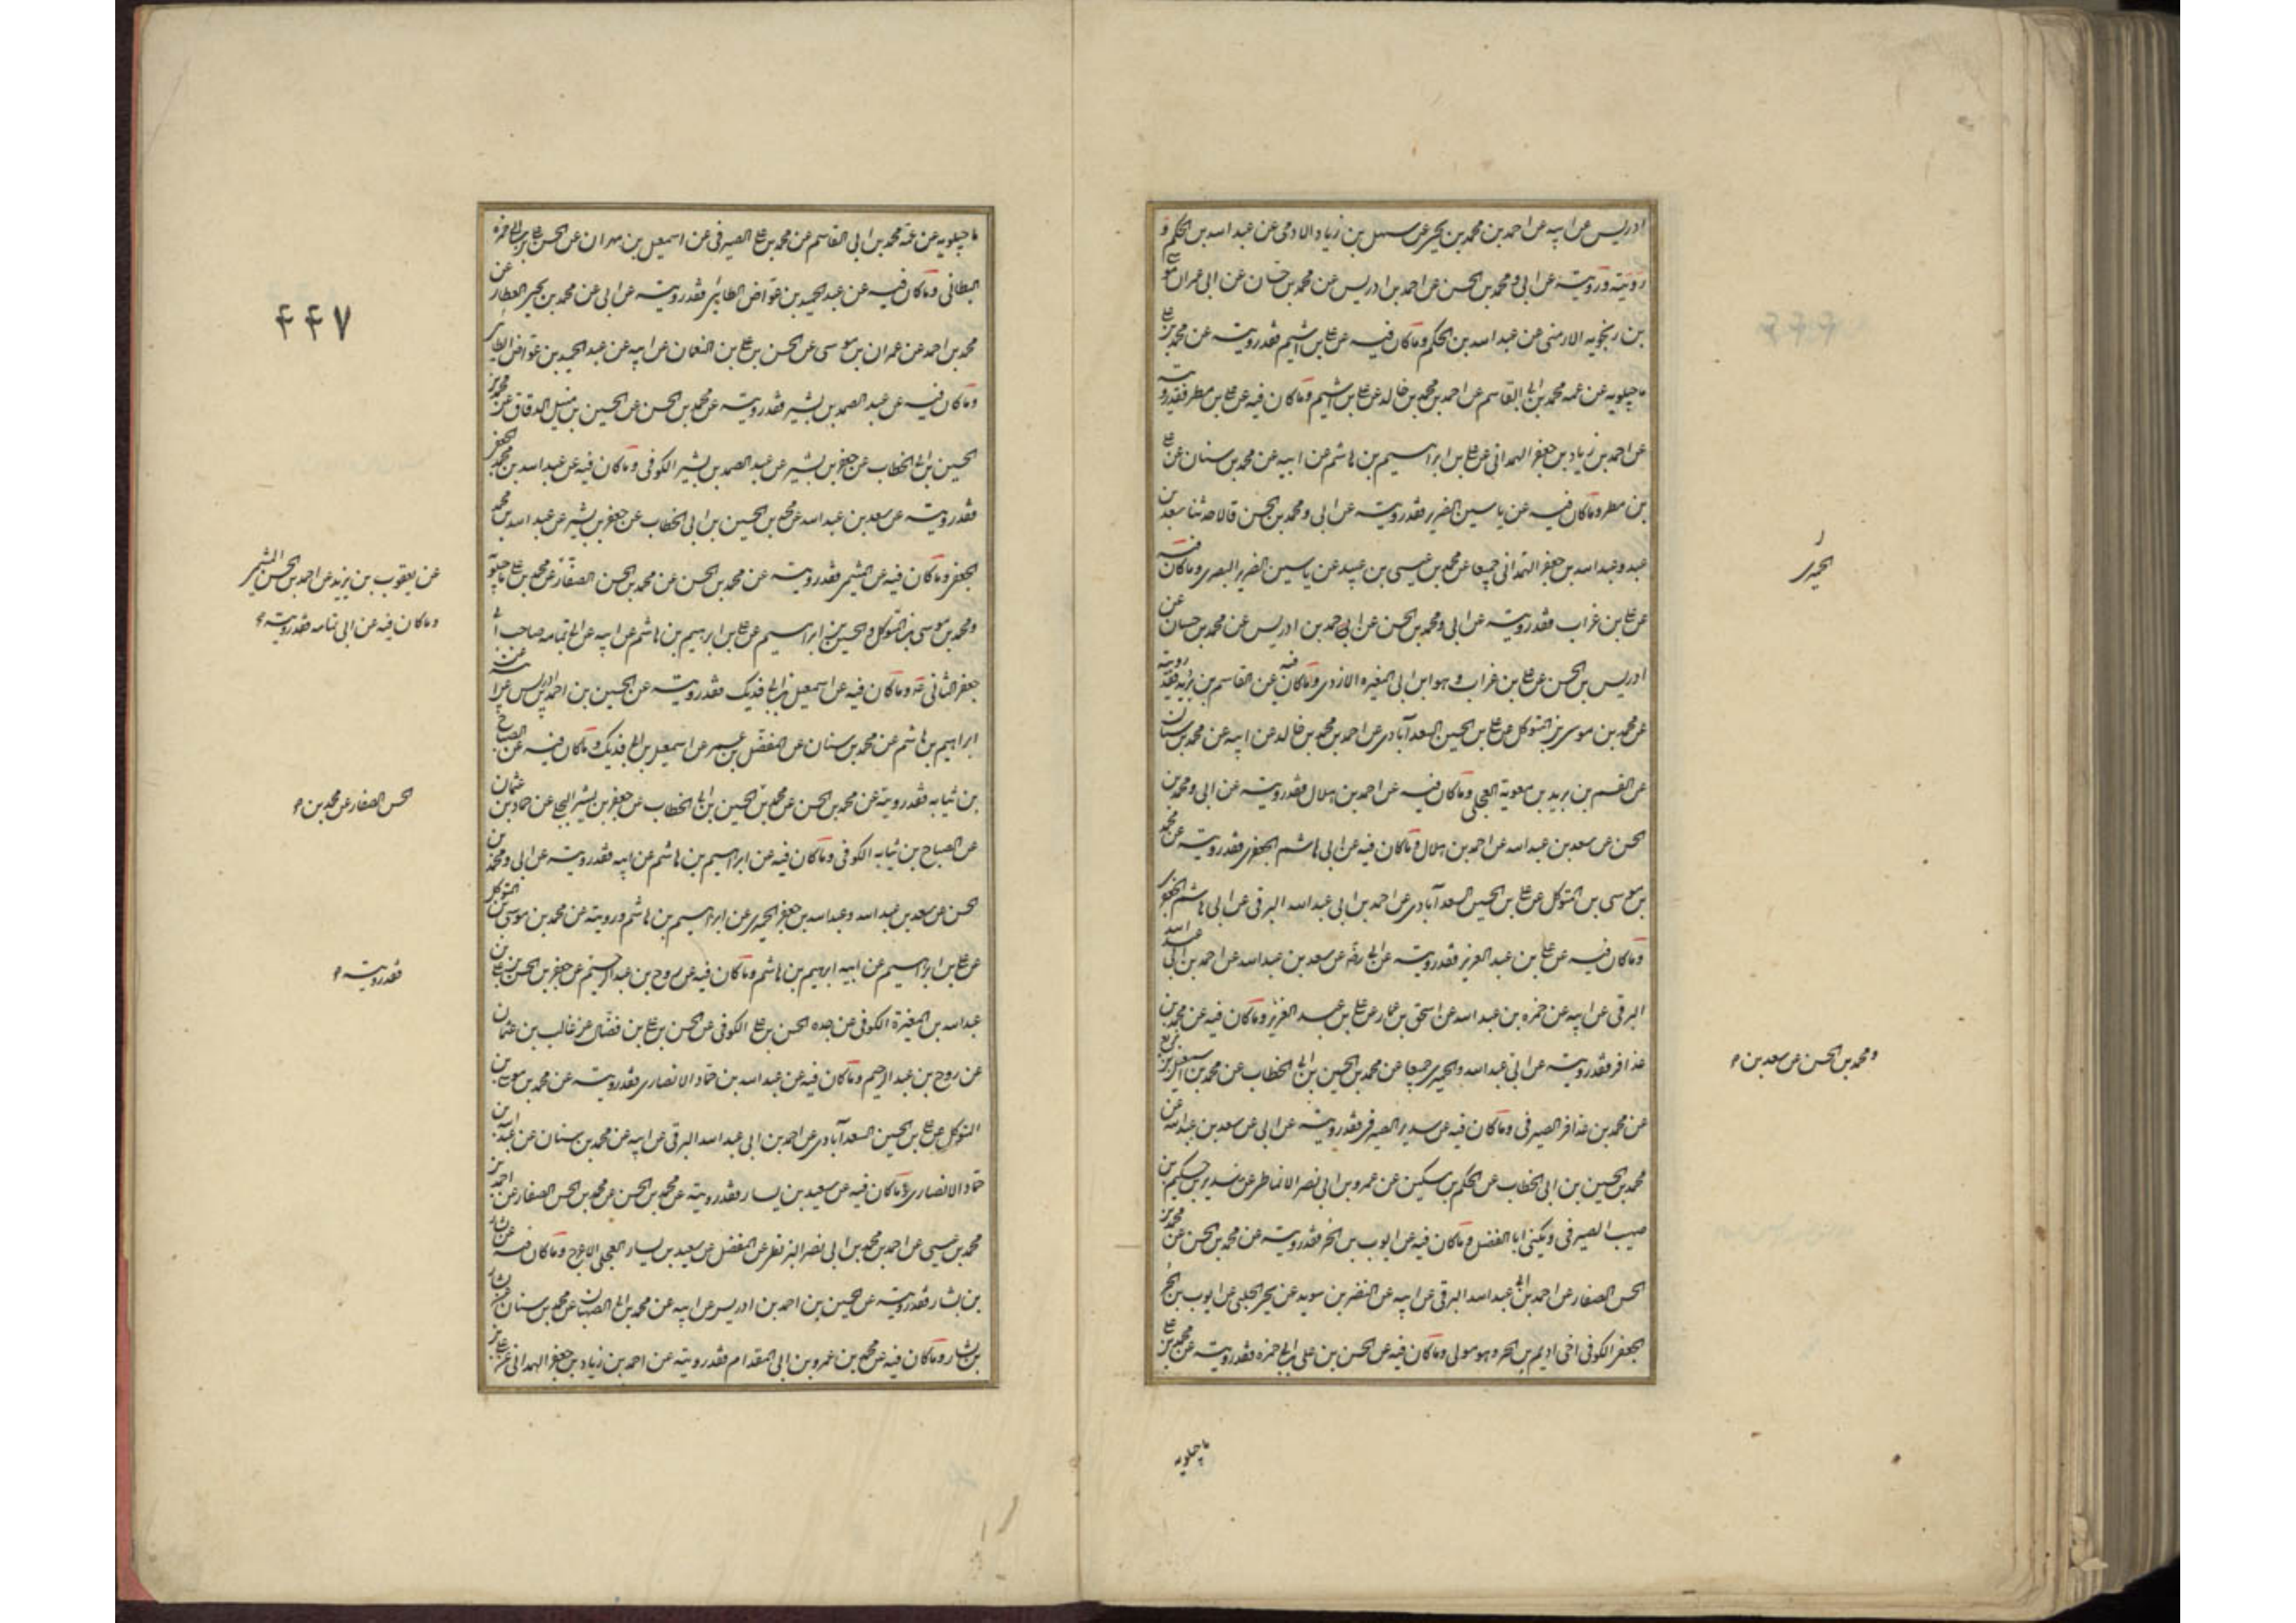 ادريس عن ابيه عن احمد بن محمد بن يحيى عن سهل بن زياد الادمى عن عبد الله بن الحكم و
رويته و رويته عن ابى و محمد بن الحسن عن احمد بن ادريس عن محمد بن حسان عن ابى عمران موسى
بن رنجويه الارمنى عن عبد الله بن الحكم و ما كان فيه عن على بن اشيم فقد رويته عن محمد بن على
ماجيلويه عن عمه محمد بن ابى القاسم عن احمد بن محمد بن خالد عن على بن اشيم و ما كان فيه عن على بن مطر فقد رويته
عن احمد بن زياد بن جعفر الهمدانى عن على بن ابراهيم بن هاشم عن ابيه عن محمد بن سنان عن على
بن مطر و ما كان فيه عن ياسين الضرير فقد رويته عن ابى و محمد بن الحسن قالا حدثنا سعد بن
عبد و عبد الله بن جعفر الهمدانى جميعا عن محمد بن عيسى بن عبيد عن ياسين الضرير البصرى و ما كان فيه
الحميرى
عن على بن غراب فقد رويته عن ابى و محمد بن الحسن عن احمد بن ادريس عن محمد بن حسان عن
ادريس بن الحسن عن على بن غراب و هو ابن ابى المغيره الازدى و ما كان فيه عن القاسم بن بريد فقد رويته
عن محمد بن موسى بن المتوكل عن على بن الحسين السعدآبادى عن احمد بن محمد بن خالد عن ابيه عن محمد بن سنان
عن القسم بن بريد بن معوية العجلى و ما كان فيه عن احمد بن هلال فقد رويته عن ابى و محمد بن
الحسن عن سعد بن عبد الله عن احمد بن هلال و ما كان فيه عن ابى هاشم الجعفرى فقد رويته عن محمد
بن موسى بن المتوكل عن على بن الحسين السعدآبادى عن احمد بن ابى عبد الله البرقى عن ابى هاشم الجعفرى
و ما كان فيه عن على بن عبد العزيز فقد رويته عن ابى رضه عن سعد بن عبد الله عن احمد بن ابى عبد الله
البرقى عن ابيه عن حمزه بن عبد الله عن اسحق بن عمار عن على بن عبد العزيز و ما كان فيه عن محمد بن
عذافر فقد رويته عن ابى عبد الله و الحميرى جميعا عن محمد بن الحسين بن ابى الخطاب عن محمد بن اسمعيل بن بزيع
و محمد بن الحسن عن سعد بن
عن محمد بن عذافر الصيرفى و ما كان فيه عن سدير الصيرفى فقد رويته عن ابى عن سعد بن عبد الله عن
محمد بن الحسين بن ابى الخطاب عن الحكم بن مسكين عن عمرو بن ابى نصر الانماطى عن سدير بن حكيم بن
صهيب الصيرفى و يكنى ابا الفضل و ما كان فيه عن ايوب بن الحر فقد رويته عن محمد بن الحسن عن محمد بن
الحسن الصفار عن احمد بن ابى عبد الله البرقى عن ابيه عن النضر بن سويد عن يحيى الحلبى عن ايوب بن الحر
الجعفى الكوفى اخى اديم بن الحر و هو مولى و ما كان فيه عن الحسن بن على بن ابى حمزه فقد رويته عن محمد بن على
ماجيلويه
ماجيلويه عن عمه محمد بن ابى القاسم عن محمد بن على الصيرفى عن اسمعيل بن مهران عن الحسن بن على بن ابى حمزه
البطائنى و ما كان فيه عن عبد الحميد بن عواض الطائى فقد رويته عن ابى عن محمد بن يحيى العطار عن
۴۴۷
محمد بن احمد عن عمران بن موسى عن الحسن بن على بن النعمان عن ابيه عن عبد الحميد بن عواض الطائى
و ما كان فيه عن عبد الصمد بن بشير فقد رويته عن محمد بن الحسن عن الحسين بن متيل الدقاق عن محمد بن
الحسين بن ابى الخطاب عن جعفر بن بشير عن عبد الصمد بن بشير الكوفى و ما كان فيه عن عبد الله بن محمد الجعفى
فقد رويته عن سعد بن عبد الله عن محمد بن الحسين بن ابى الخطاب عن جعفر بن بشير عن عبد الله بن محمد
الجعفى و ما كان فيه عن الميثمى فقد رويته عن محمد بن الحسن عن محمد بن الحسن الصفار عن محمد بن على ماجيلويه
عن يعقوب بن يزيد عن احمد بن الحسن الميثمى
و ما كان فيه عن ابى ثمامه فقد رويته
و محمد بن موسى بن المتوكل و الحسين بن ابراهيم عن على بن ابرهيم بن هاشم عن ابيه عن ابى ثمامه صاحب ابى
جعفر الثانى ع و ما كان فيه عن اسمعيل بن ابى فديك فقد رويته عن الحسين بن احمد بن ادريس عن ابيه عن
ابراهيم بن هاشم عن محمد بن سنان عن المفضل بن عمر عن اسمعيل بن ابى فديك و ما كان فيه عن الصباح
بن سيابه فقد رويته عن محمد بن الحسن عن محمد بن الحسين بن ابى الخطاب عن جعفر بن بشير البجلى عن حماد بن عثمان
الحسن الصفار عن محمد بن
عن الصباح بن سيابه الكوفى و ما كان فيه عن ابراهيم بن هاشم عن ابيه فقد رويته عن ابى و محمد بن
الحسن عن سعد بن عبد الله و عبد الله بن جعفر الحميرى عن ابراهيم بن هاشم و رويته عن محمد بن موسى بن المتوكل
عن على بن ابراهيم عن ابيه ابرهيم بن هاشم و ما كان فيه عن روح بن عبد الرحيم عن جعفر بن الحسن بن على بن
فقد رويته
عبد الله بن المغيرة الكوفى عن جده الحسن بن على الكوفى عن الحسن بن على بن فضال عن غالب بن عثمان
عن روح بن عبد الرحيم و ما كان فيه عن عبد الله بن حماد الانصارى فقد رويته عن محمد بن موسى بن
المتوكل عن على بن الحسين السعدآبادى عن احمد بن ابى عبد الله البرقى عن ابيه عن محمد بن سنان عن عبد الله بن
حماد الانصارى و ما كان فيه عن سعيد بن يسار فقد رويته عن محمد بن الحسن عن محمد بن الحسن الصفار عن احمد بن
محمد بن عيسى عن احمد بن محمد بن ابى نصر البزنطى عن المفضل عن سعيد بن يسار العجلى الاعرج و ما كان فيه عن بشار
بن بشار فقد رويته عن الحسين بن احمد بن ادريس عن ابيه عن محمد بن ابى الصهبان عن محمد بن سنان عن بشار
بن بشار و ما كان فيه عن محمد بن عمرو بن ابى المقدام فقد رويته عن احمد بن زياد بن جعفر الهمدانى عن على بن